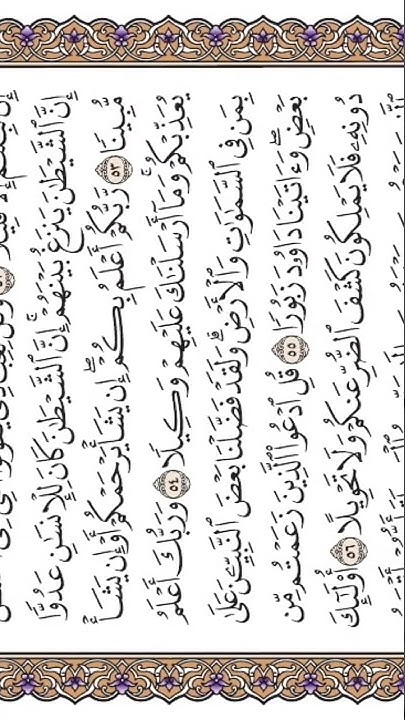 إِنَّ ٱلشَّيْطَٰنَ يَنزَغُ بَيْنَهُمْ ۚ إِنَّ ٱلشَّيْطَٰنَ كَانَ لِلْإِنسَٰنِ عَدُوًّا
مُّبِينًا ٥٣ رَّبُّكُمْ أَعْلَمُ بِكُمْ ۖ إِن يَشَأْ يَرْحَمْكُمْ أَوْ إِن يَشَأْ
يُعَذِّبْكُمْ ۚ وَمَآ أَرْسَلْنَٰكَ عَلَيْهِمْ وَكِيلًا ٥٤ وَرَبُّكَ أَعْلَمُ
بِمَن فِى ٱلسَّمَٰوَٰتِ وَٱلْأَرْضِ ۗ وَلَقَدْ فَضَّلْنَا بَعْضَ ٱلنَّبِيِّۦنَ عَلَىٰ
بَعْضٍ ۖ وَءَاتَيْنَا دَاوُۥدَ زَبُورًا ٥٥ قُلِ ٱدْعُوا۟ ٱلَّذِينَ زَعَمْتُم مِّن
دُونِهِۦ فَلَا يَمْلِكُونَ كَشْفَ ٱلضُّرِّ عَنكُمْ وَلَا تَحْوِيلًا ٥٦ أُو۟لَٰٓئِكَ